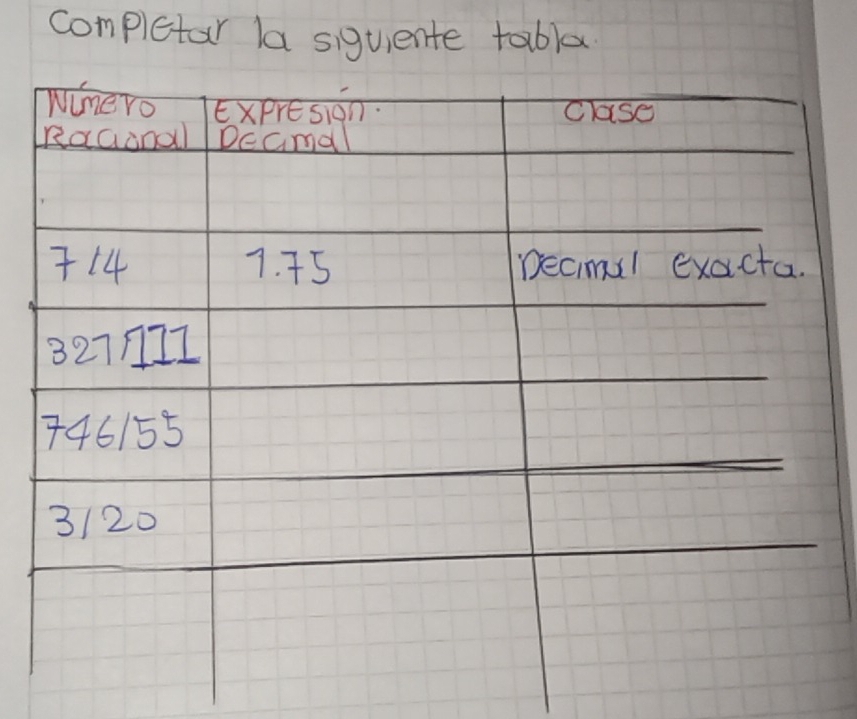 Completar la siguiente tabla.
Número Racional
Expresión Decimal
Clase
7/4
1.75
Decimal exacta.
327/111
746/55
3/20